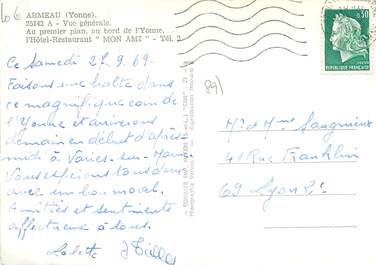 ARMEAU (Yonne).
25142 A - Vue générale.
Au premier plan, au bord de l'Yonne,
l'Hôtel-Restaurant " MON AMI " - Tél. 2
Ce Samedi 27. 9. 69.
Faisons une halte dans
ce magnifique coin de
l'Yonne et arriverons
demain en début d'après-
midi à sur
Vous espérons tous deux
avec un bon moral.
Amitiés et sentiments
affectueux à tous.
89)
0,30
REPUBLIQUE FRANÇAISE
Mr et Mme
41 Rue Franklin
69 Lyon 2e